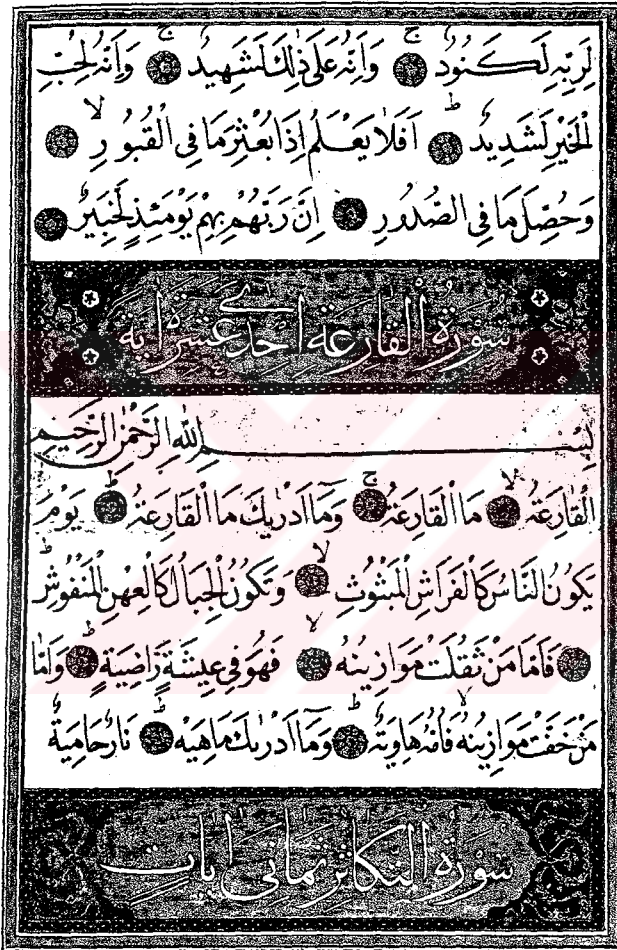 لِرَبِّهِ لَكَنُودٌ ۚ وَاِنَّهُ عَلٰى ذٰلِكَ لَشَهِيدٌ ۚ وَاِنَّهُ لِحُبِّ
الْخَيْرِ لَشَدِيدٌ ۜ اَفَلَا يَعْلَمُ اِذَا بُعْثِرَ مَا فِى الْقُبُورِ ۙ
وَحُصِّلَ مَا فِى الصُّدُورِ اِنَّ رَبَّهُمْ بِهِمْ يَوْمَئِذٍ لَخَبِيرٌ
سُورَةُ الْقَارِعَةِ اِحْدٰى عَشْرَةَ اٰيَةً
بِسْمِ اللّٰهِ الرَّحْمٰنِ الرَّحِيمِ
اَلْقَارِعَةُ ۙ مَا الْقَارِعَةُ ۚ وَمَا اَدْرٰيكَ مَا الْقَارِعَةُ ۜ يَوْمَ
يَكُونُ النَّاسُ كَالْفَرَاشِ الْمَبْثُوثِ ۙ وَتَكُونُ الْجِبَالُ كَالْعِهْنِ الْمَنْفُوشِ
فَاَمَّا مَنْ ثَقُلَتْ مَوَازِينُهُ ۙ فَهُوَ فِى عِيشَةٍ رَاضِيَةٍ ۜ وَاَمَّا
مَنْ خَفَّتْ مَوَازِينُهُ ۙ فَاُمُّهُ هَاوِيَةٌ ۜ وَمَا اَدْرٰيكَ مَاهِيَهْ ۜ نَارٌ حَامِيَةٌ
سُورَةُ التَّكَاثُرِ ثَمَانِى اٰيَاتٍ